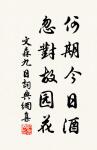 何期今日酒
忽對故园花
文森九日詞典網集